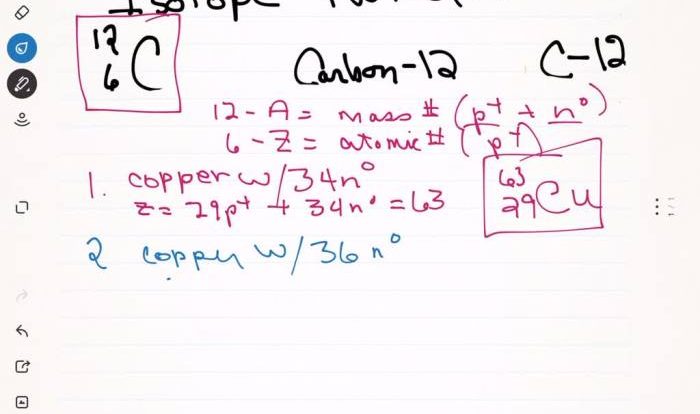 Isotope
12
6 C
Carbon-12
C-12
12 - A = mass # (p+ + n°)
6 - Z = atomic # (p+)
1. copper w/34n°
z = 29p+ + 34n° = 63
63
29 Cu
2 copper w/36n°